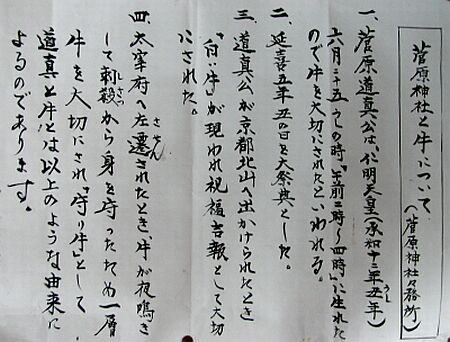 菅原神社と牛について
(菅原神社々務所)
一、菅原道真公は、仁明天皇(承和十二年丑年)
うし
六月二十五うしの時「午前二時〜四時」に生れた
ので牛を大切にされたといわれる。
二、延喜五年丑の日を大祭典とした。
三、道真公が京都北山へ出かけられたとき
「白い牛」が現われ祝福吉報として大切
にされた。
四、太宰府へ左遷されたとき牛が夜鳴き
させん
して刺殺から身を守ったため一層
しさつ
牛を大切にされ「守り牛」として
道真と牛は以上のような由来に
よるのであります。